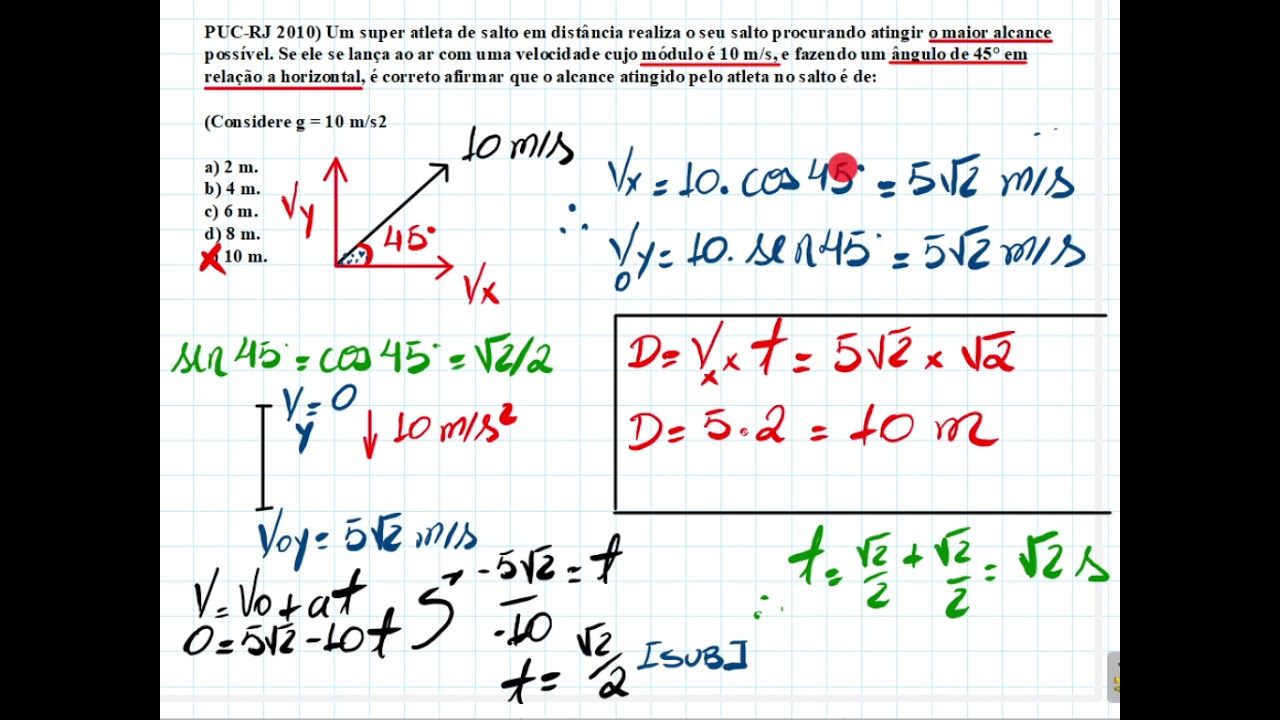 PUC-RJ 2010) Um super atleta de salto em distância realiza o seu salto procurando atingir o maior alcance
possível. Se ele se lança ao ar com uma velocidade cujo módulo é 10 m/s, e fazendo um ângulo de 45° em
relação a horizontal, é correto afirmar que o alcance atingido pelo atleta no salto é de:
(Considere g = 10 m/s2
a) 2 m.
b) 4 m.
c) 6 m.
d) 8 m.
10 m.
10 m/s
Vy
45°
Vx
∴
Vx = 10. cos 45° = 5√2 m/s
V0y = 10. sen 45° = 5√2 m/s
sen 45° = cos 45° = √2/2
Vy = 0
10 m/s²
Voy = 5√2 m/s
D = Vx × t = 5√2 × √2
D = 5.2 = 10 m
V = Vo + at
0 = 5√2 - 10t
-5√2/-10 = t
t = √2/2 [SUB]
∴ t = √2/2 + √2/2 = √2 s